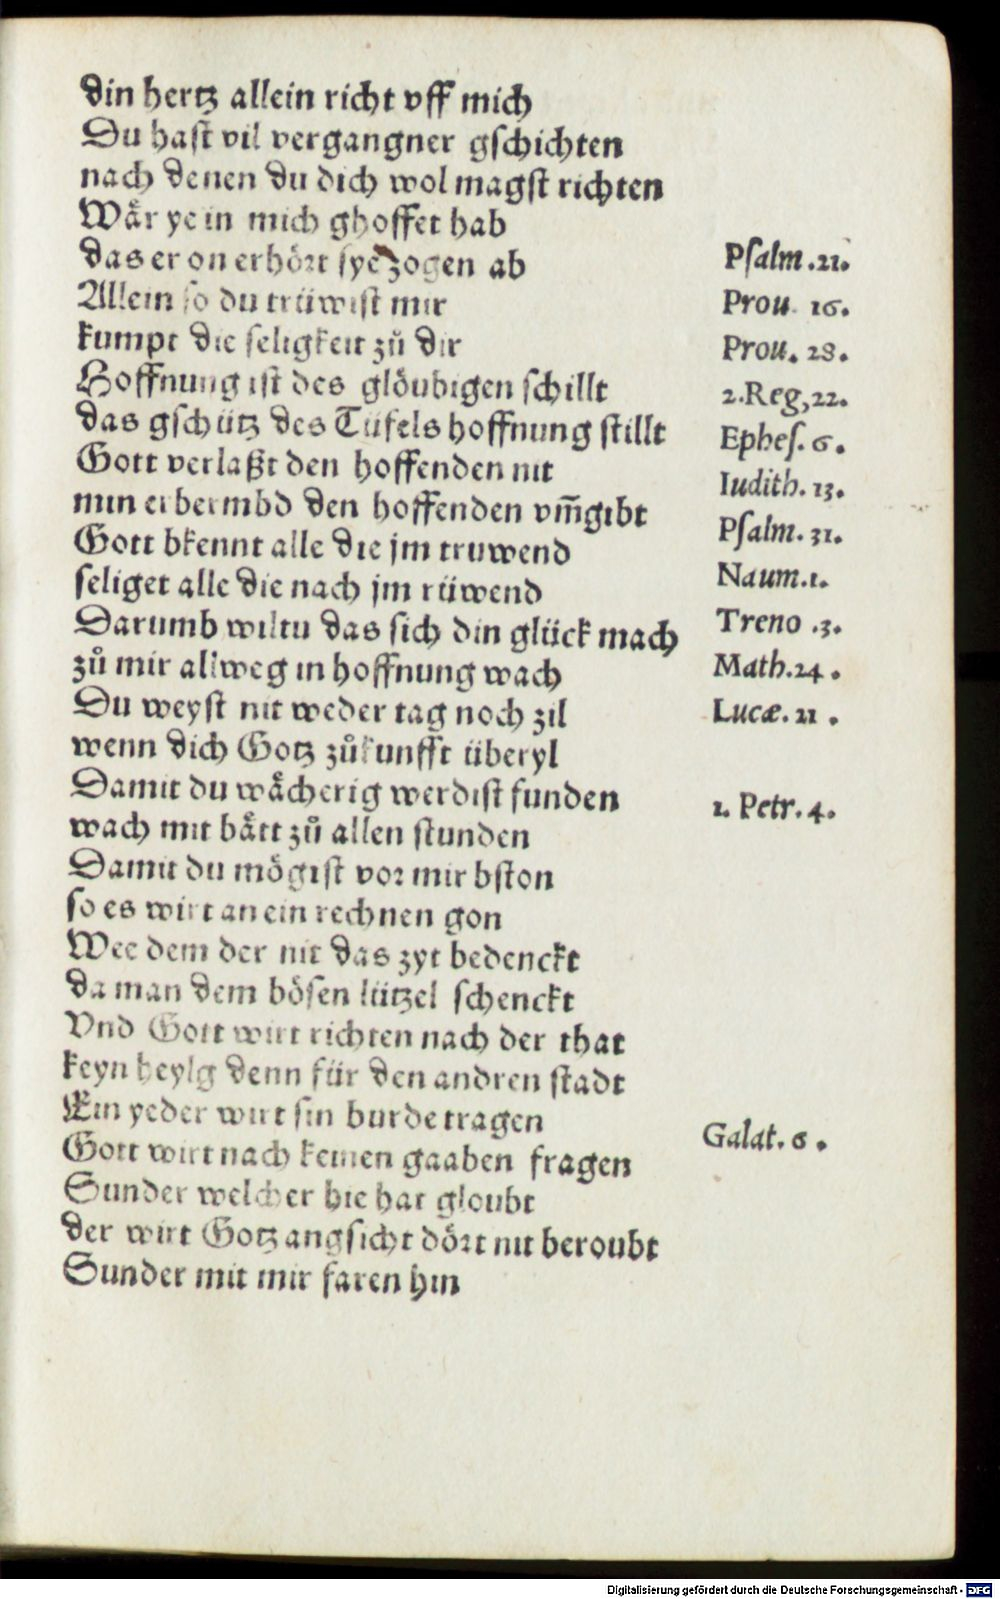 din hertz allein richt vff mich
Du hast vil vergangner gschichten
nach denen du dich wol magst richten
Wår ye in mich ghoffet hab
das er on erhört sye zogen ab
Psalm .21.
Allein so du trüwist mir
Prou. 16.
kumpt die seligkeit zů dir
Prou. 28.
Hoffnung ist des glöubigen schillt
2.Reg,22.
das gschütz des Tüfels hoffnung stillt
Ephes. 6.
Gott verlaßt den hoffenden nit
Iudith. 13.
min erbermbd den hoffenden vm̄gibt
Psalm. 31.
Gott bkennt alle die jm truwend
Naum.1.
seliget alle die nach jm rüwend
Darumb wiltu das sich din glück mach
Treno .3.
zů mir allweg in hoffnung wach
Math.24.
Du weyst nit weder tag noch zil
Lucæ. 21.
wenn dich Gotz zůkunfft überyl
Damit du wåcherig werdist funden
1. Petr. 4.
wach mit bått zů allen stunden
Damit du mögist vor mir bston
so es wirt an ein rechnen gon
Wee dem der nit das zyt bedenckt
da man dem bösen lützel schenckt
Vnd Gott wirt richten nach der that
keyn heylg denn für den andren stadt
Ein yeder wirt sin burde tragen
Galat. 6.
Gott wirt nach keinen gaaben fragen
Sunder welcher hie hat gloubt
der wirt Gotz angsicht dört nit beroubt
Sunder mit mir faren hin
Digitalisierung gefördert durch die Deutsche Forschungsgemeinschaft - DFG